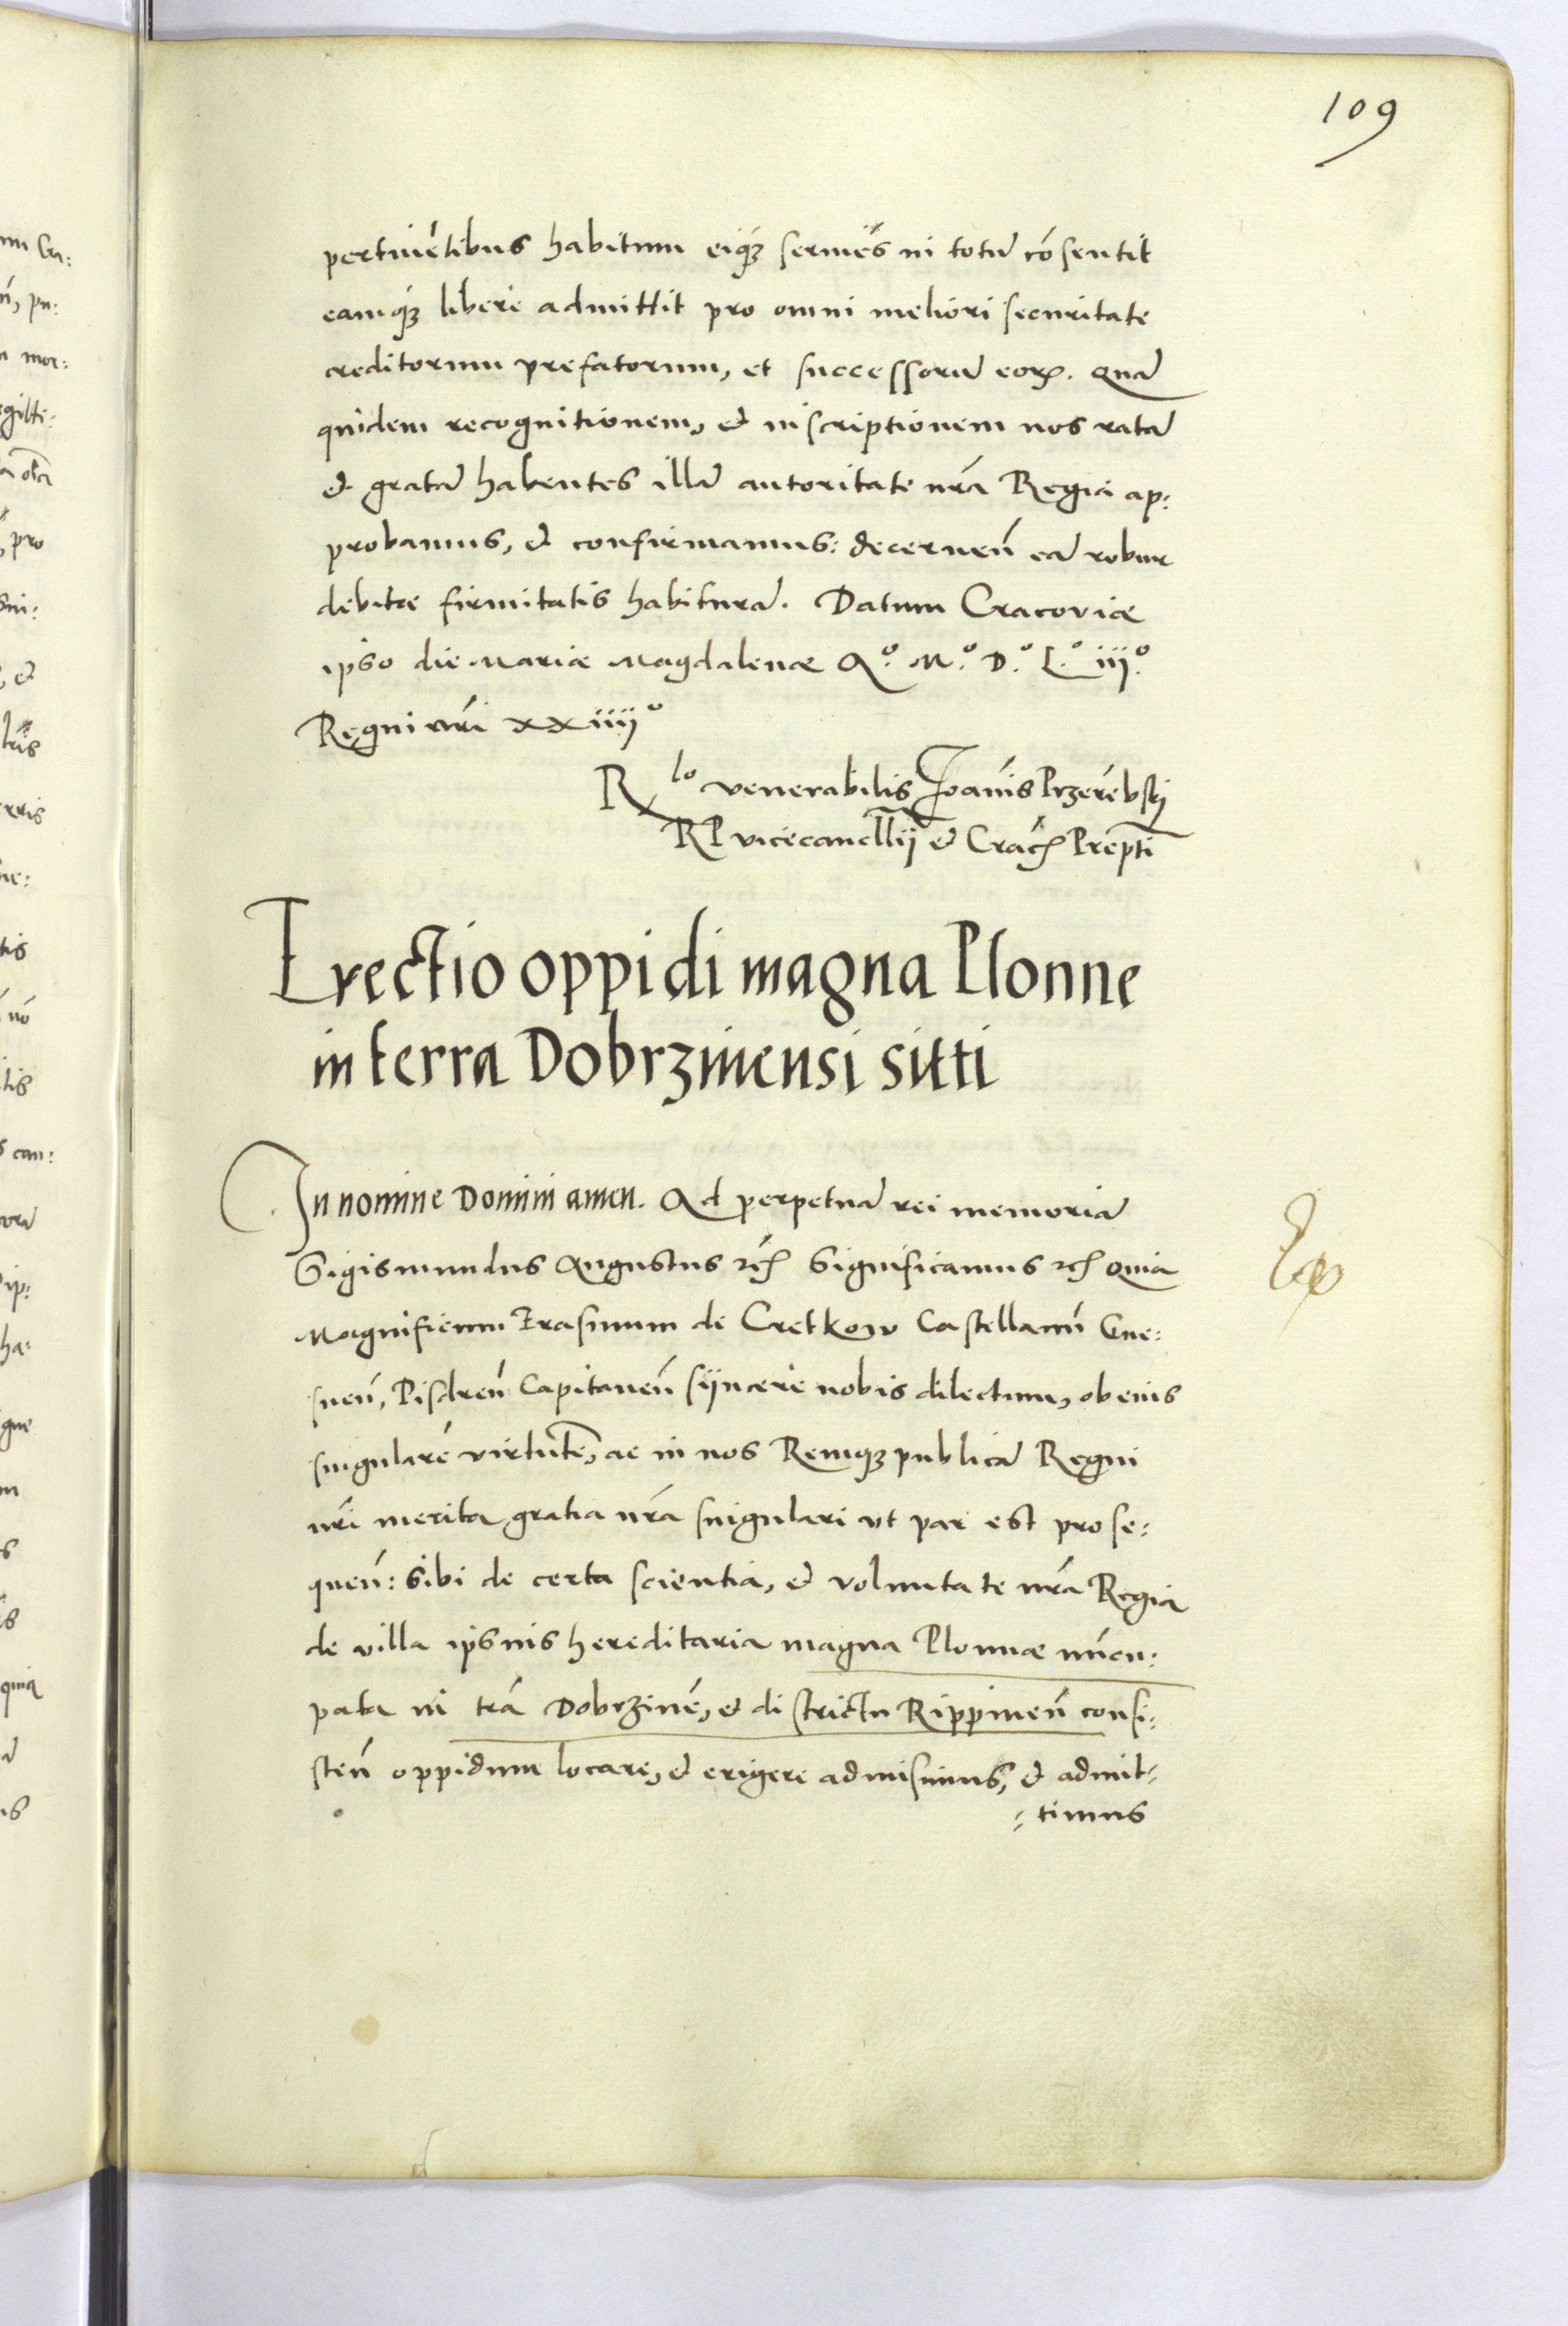 109
pertinẽtibus habitum eiqꝫ sermẽs in totũ cõsentit
eamqꝫ libere admittit pro omni meliori securitate
creditorum prefatorum, et successorũ eorꝝ. Quã
quidem recognitionem, et inscriptionem nos ratã
et gratã habentes illã autoritate nrã Regia ap:
probamus, et confirmamus: decernen̄ eã robur
debitæ firmitatis habiturã. Datum Cracoviæ
ipso die Mariæ Magdalenæ Aº. Mº. Dº. Lº. iijº.
Regni nr̃i xxiiijº
Rlo venerabilis Joãnis Przerẽbskj
RP vicecancllij et Crac̃ Prepti
Erectio oppidi magna Plonne
in terra Dobrzinensi sitti
In nomine Domini amen. Ad perpetuã rei memoriã
Sigismundus Augustus etc̃ Significamus etc̃ Quia
Magnificum Erasmum de Cretkow Castellanũ Gne:
snen̄, Pisdren̄ Capitaneũ sijncere nobis dilectum, ob eius
singularẽ virtutẽ, ac in nos Remqꝫ publicã Regni
nr̃i merita gratia nr̃a singulari vt par est prose:
quen̄: Sibi de certa scientia, et voluntate nr̃a Regia
de villa ipsius hereditaria magna Plonnæ nũcu:
pata in tr̃a Dobrzinẽ, et districtu Rippinen̄ consi:
sten̄ oppidum locare, et erigere admisimus, et admit:
:timus